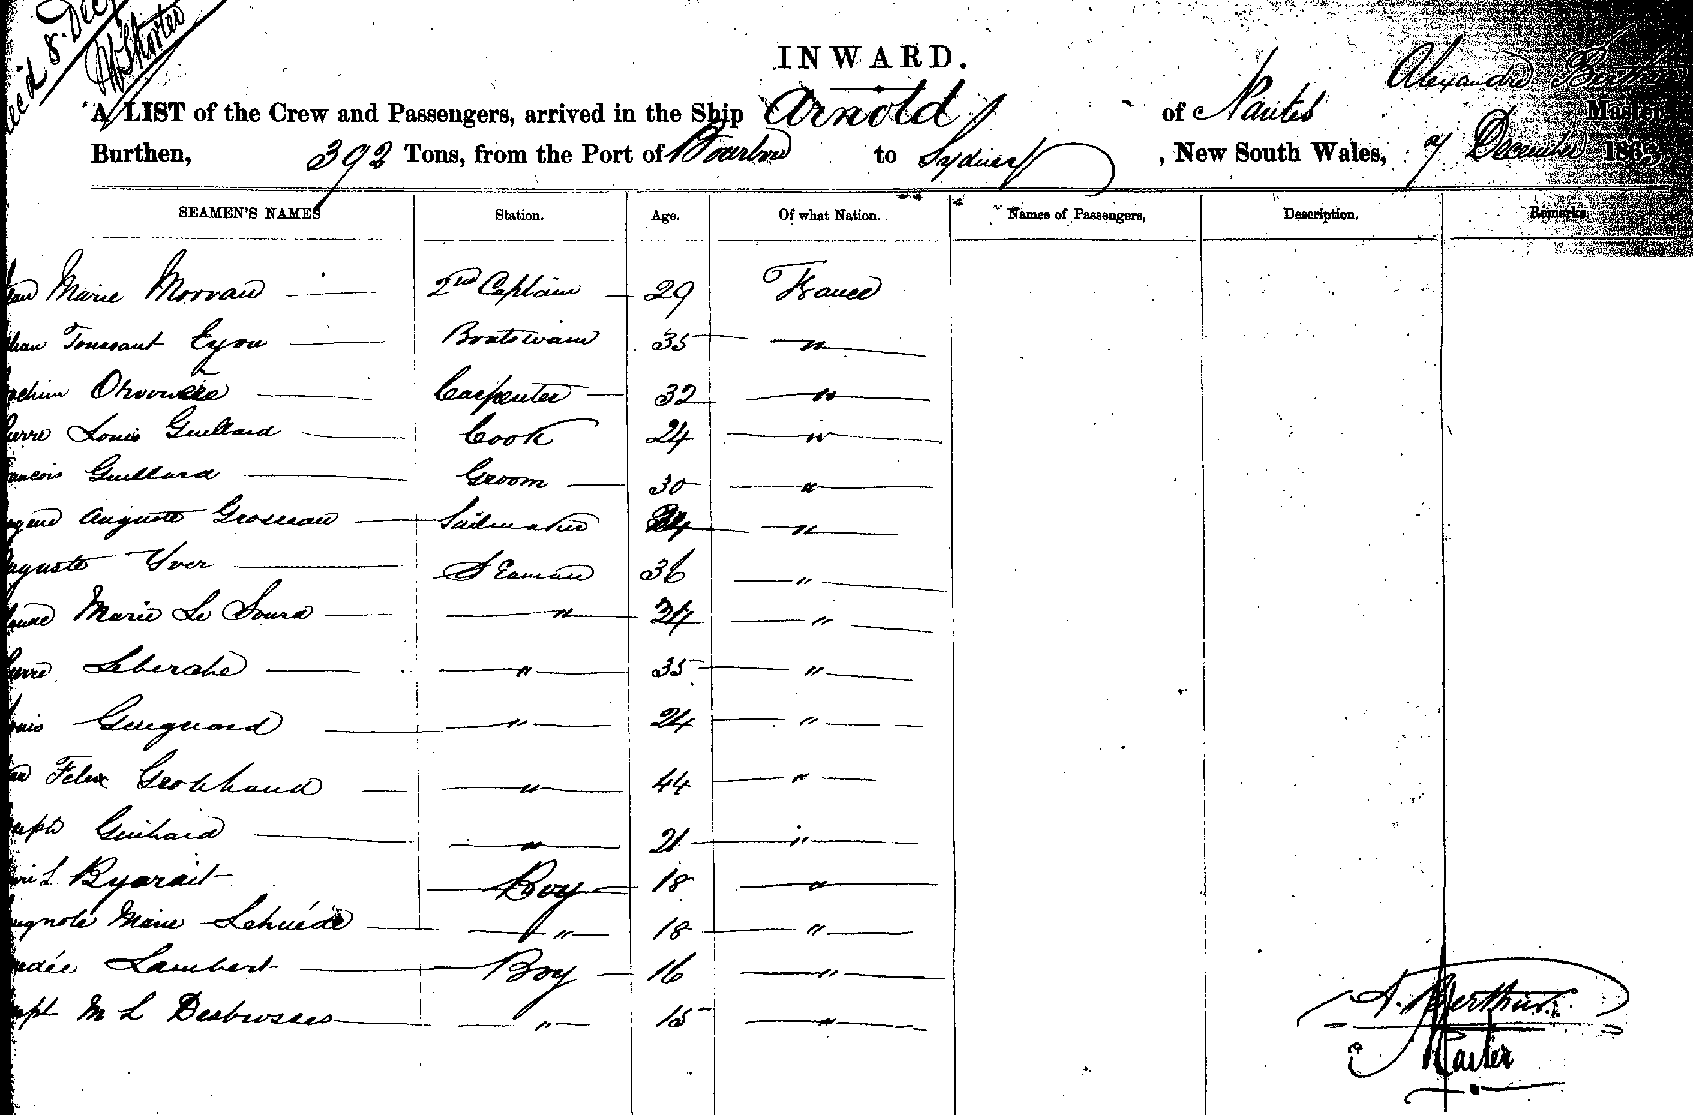 INWARD.
A LIST of the Crew and Passengers, arrived in the Ship Arnold of Nantes Alexandre Master,
Burthen, 392 Tons, from the Port of Bourbon to Sydney, New South Wales, 7 December 186
SEAMEN'S NAMES Station. Age. Of what Nation. Names of Passengers, Description. Remarks
Marie Morvan 2nd Captain 29 France
Toussant Eyou Boatswain 35 "
Carpenter 32 "
Louis Guillard Cook 24 "
Guillard Groom 30 "
Auguste Grosseau Sailmaker "
Yver Seaman 36 "
Marie Le Sourd " 24 "
Leberche " 35 "
Guiguard " 24 "
Felix " 44 "
Guihard " 21 "
Byarait Boy 18 "
Marie Lehuédé " 18 "
Lambert Boy 16 "
M L Desbrosses " 15 "
A. Berthus
Master